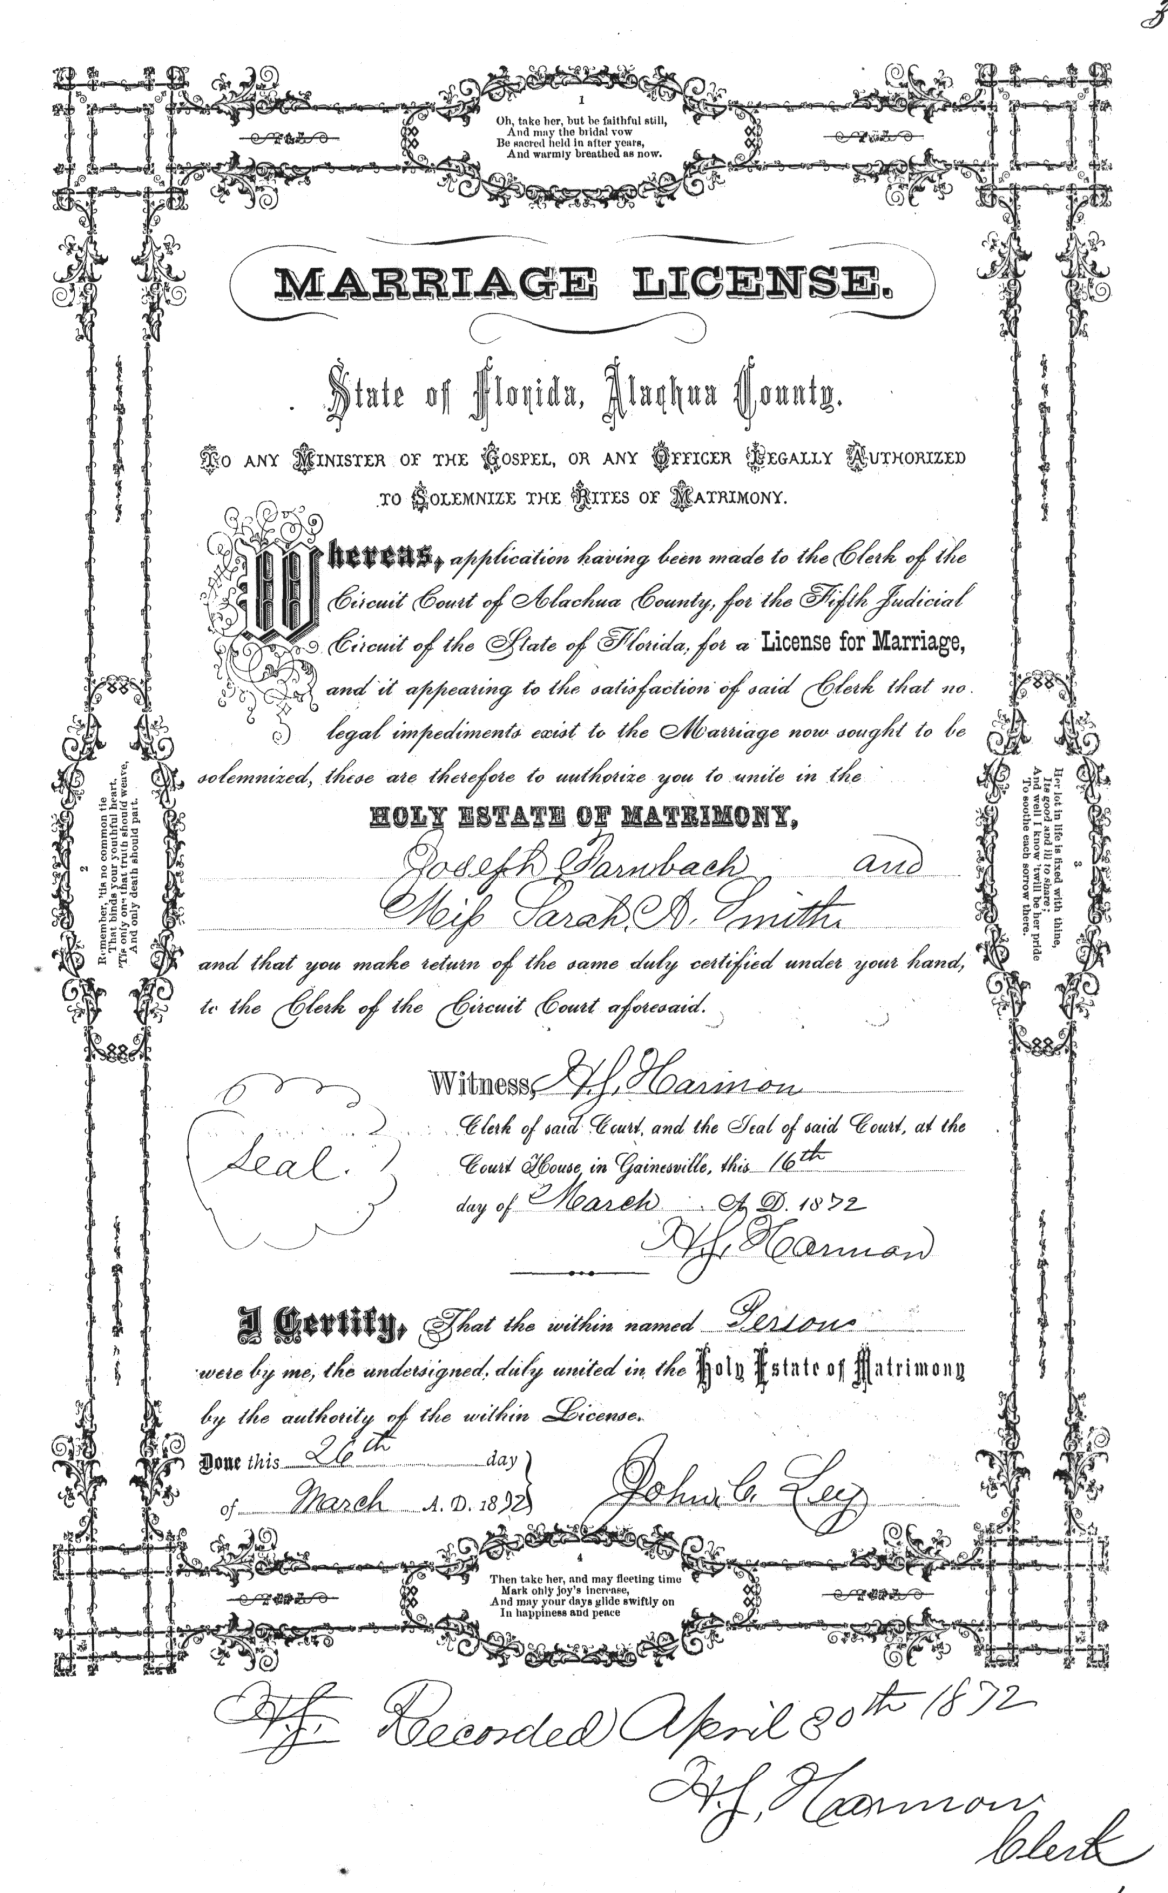 1
Oh, take her, but be faithful still,
And may the bridal vow
Be sacred held in after years,
And warmly breathed as now.
MARRIAGE LICENSE.
State of Florida, Alachua County.
TO ANY MINISTER OF THE GOSPEL, OR ANY OFFICER LEGALLY AUTHORIZED
TO SOLEMNIZE THE RITES OF MATRIMONY.
Whereas, application having been made to the Clerk of the
Circuit Court of Alachua County, for the Fifth Judicial
Circuit of the State of Florida, for a License for Marriage,
and it appearing to the satisfaction of said Clerk that no
legal impediments exist to the Marriage now sought to be
solemnized, these are therefore to authorize you to unite in the
HOLY ESTATE OF MATRIMONY,
Joseph and
Miss Sarah A. Smith
and that you make return of the same duly certified under your hand,
to the Clerk of the Circuit Court aforesaid.
2
Remember, 'tis no common tie
That binds your youthful heart,
'Tis only one that truth should weave,
And only death should part.
3
Her lot in life is fixed with thine,
Its good and ill to share;
And well I know 'twill be her pride
To soothe each sorrow there.
Witness, H.J. Harmon
Seal.
Clerk of said Court, and the Seal of said Court, at the
Court House, in Gainesville, this 16th
day of March A.D. 1872
H.J. Harmon
I Certify, That the within named Persons
were by me, the undersigned, duly united in the Holy Estate of Matrimony
by the authority of the within License.
Done this 26th day
of March A.D. 1872
John C. Ley
4
Then take her, and may fleeting time
Mark only joy's increase,
And may your days glide swiftly on
In happiness and peace
Recorded April 30th 1872
H.J. Harmon
Clerk